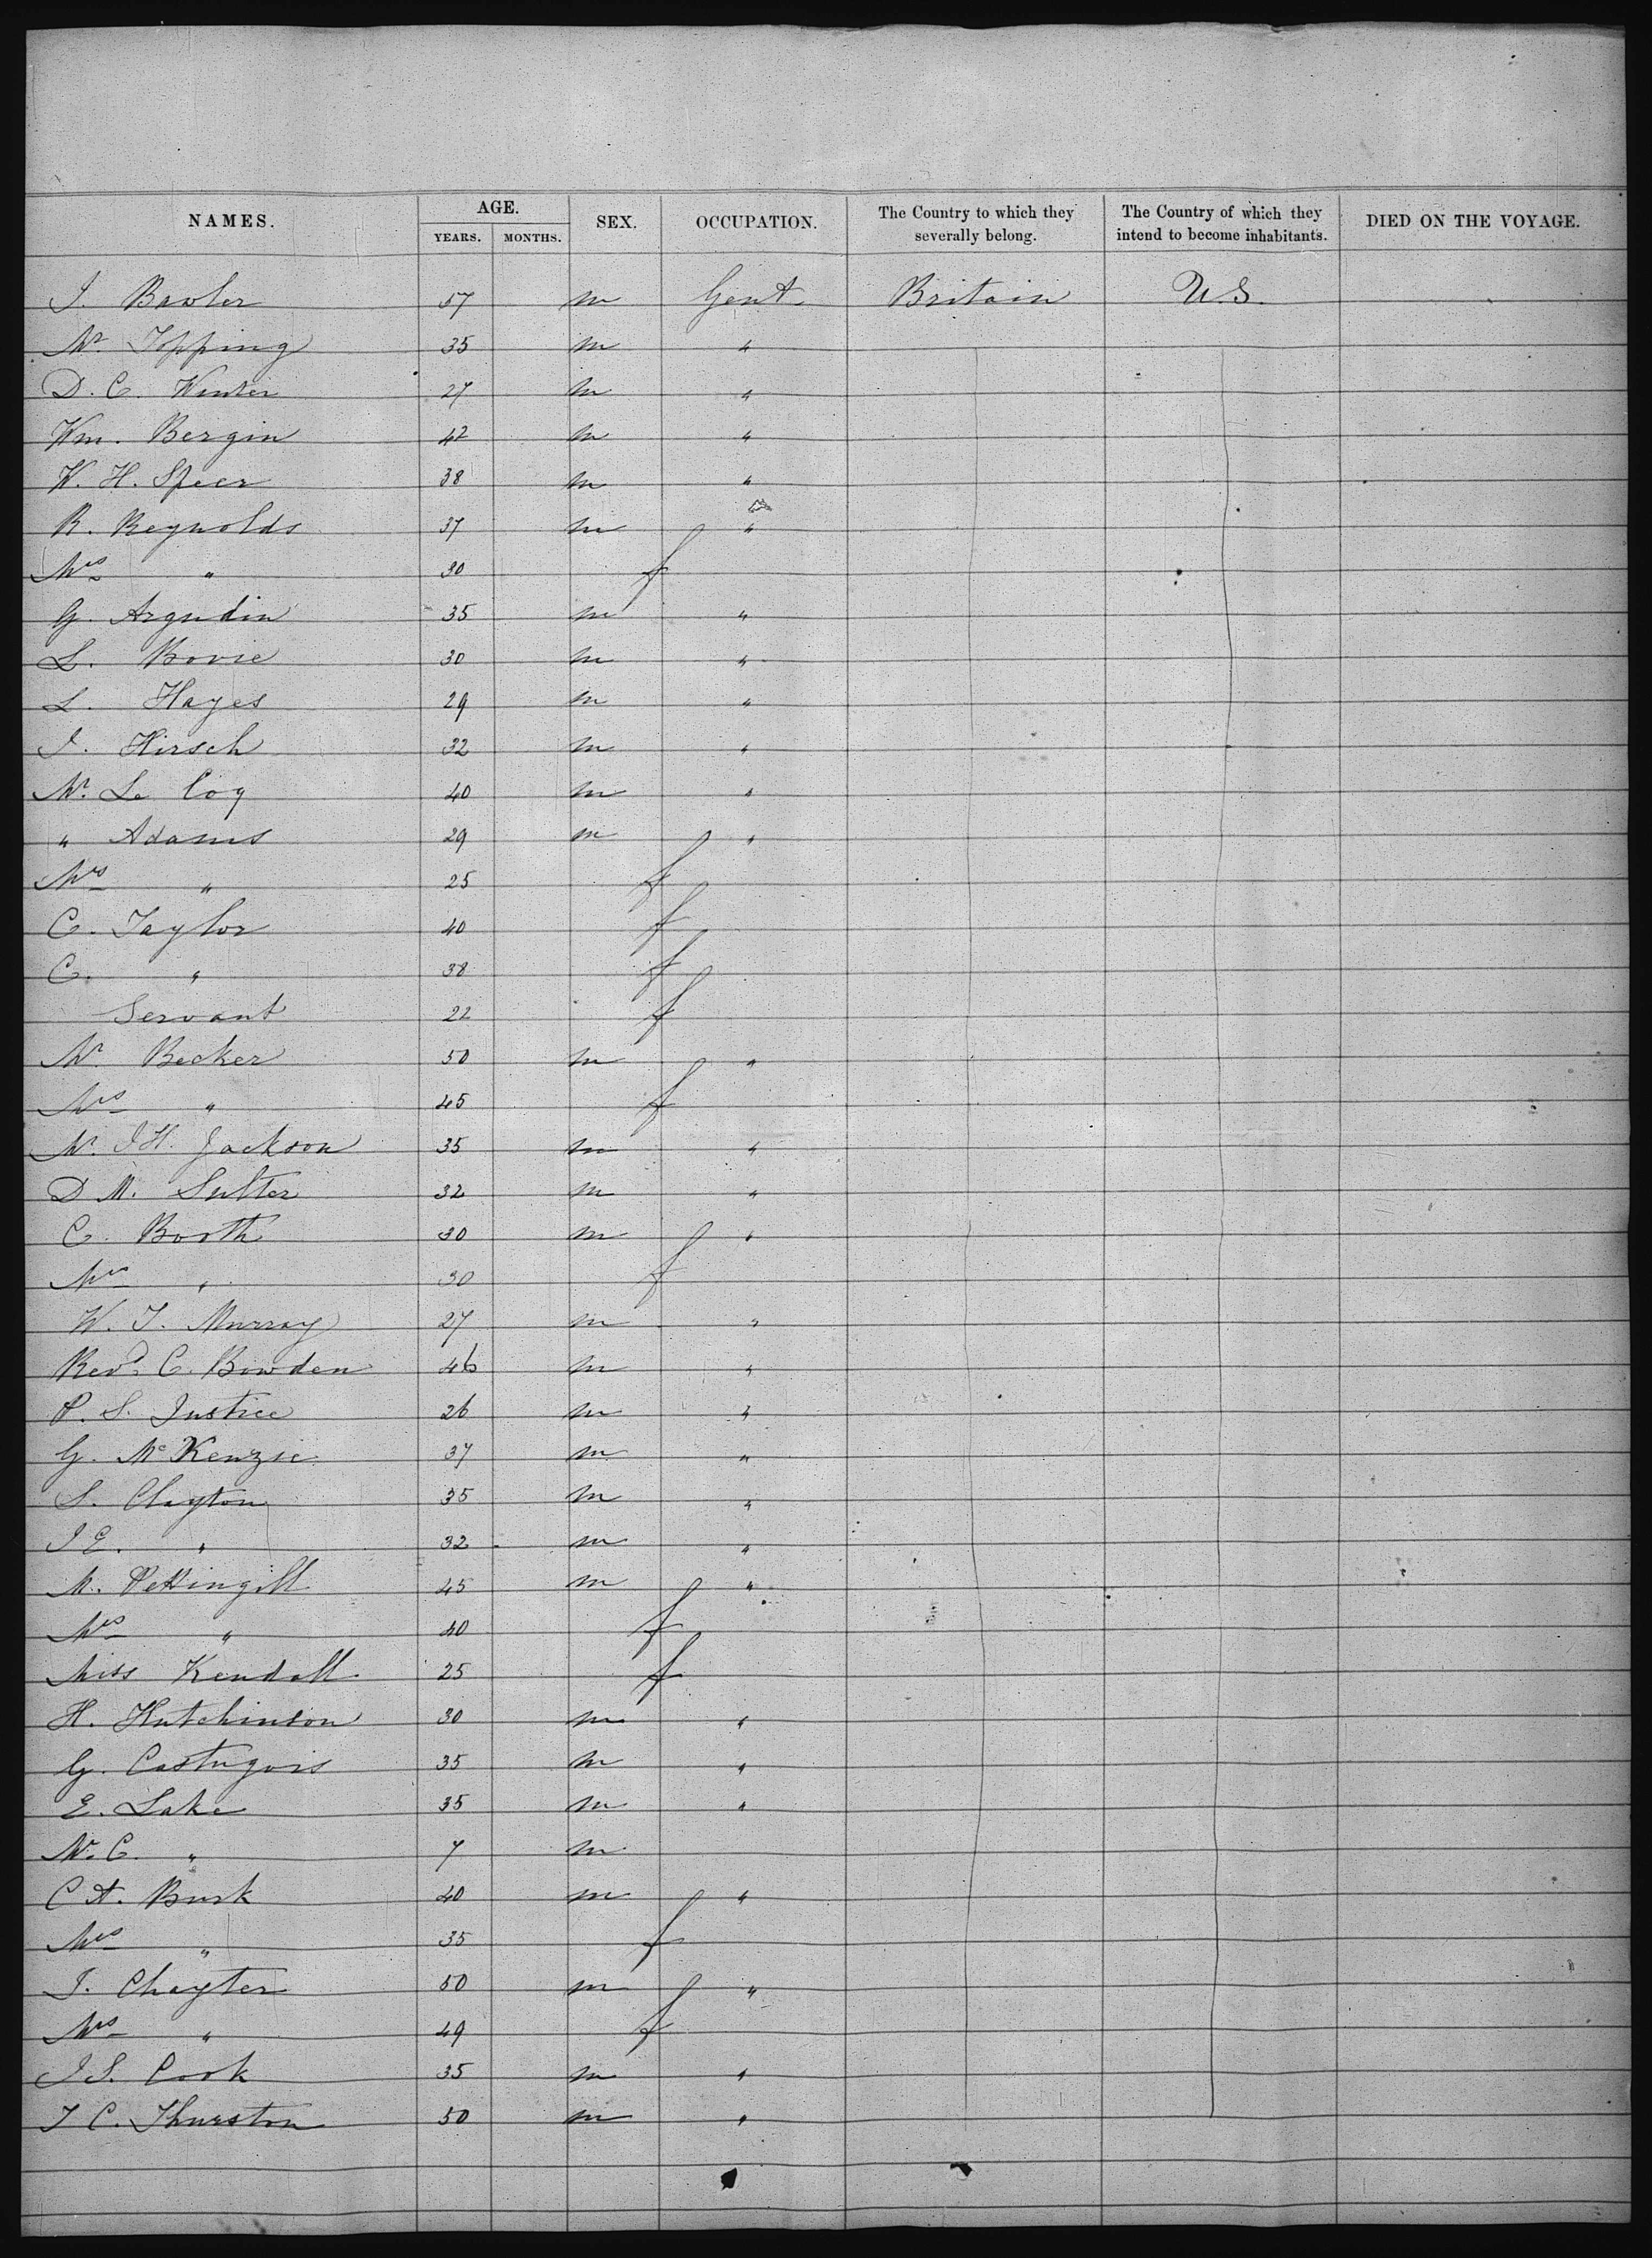 NAMES. AGE. SEX. OCCUPATION. The Country to which they severally belong. The Country of which they intend to become inhabitants. DIED ON THE VOYAGE.
YEARS. MONTHS.
J. Bawler 57 m Gent Britain U.S.
Mr. Topping 35 m "
D. C. Winter 27 m "
Wm. Bergin 42 m "
W. H. Speer 38 m "
R. Reynolds 37 m "
Mrs " 30 f
G. Argudin 35 m "
L. Bovie 30 m "
L. Hayes 29 m "
I. Hirsch 32 m "
Mr. Le Coq 40 m "
" Adams 29 m "
Mrs " 25 f
C. Taylor 40 f
C. " 38 f
Servant 22 f
Mr. Becker 50 m "
Mrs " 45 f
Mr. J H. Jackson 35 m "
D M. Sulter 32 m "
C. Booth 30 m "
Mrs " 30 f
W. J. Murray 27 m "
Revd. C. Bowden 46 m "
P. S. Justice 26 m "
G. McKenzie 37 m "
S. Clayton 35 m "
J E. " 32 m "
M. Pettingill 45 m "
Mrs " 40 f
Miss Kendall 25 f
H. Hutchinson 30 m "
G. 35 m "
E. Lake 35 m "
Mr. C. " 7 m
C A. Burk 40 m "
Mrs " 35 f
J. Chayter 50 m "
Mrs " 49 f
J S. Cook 35 m "
T C. Thurston 50 m "